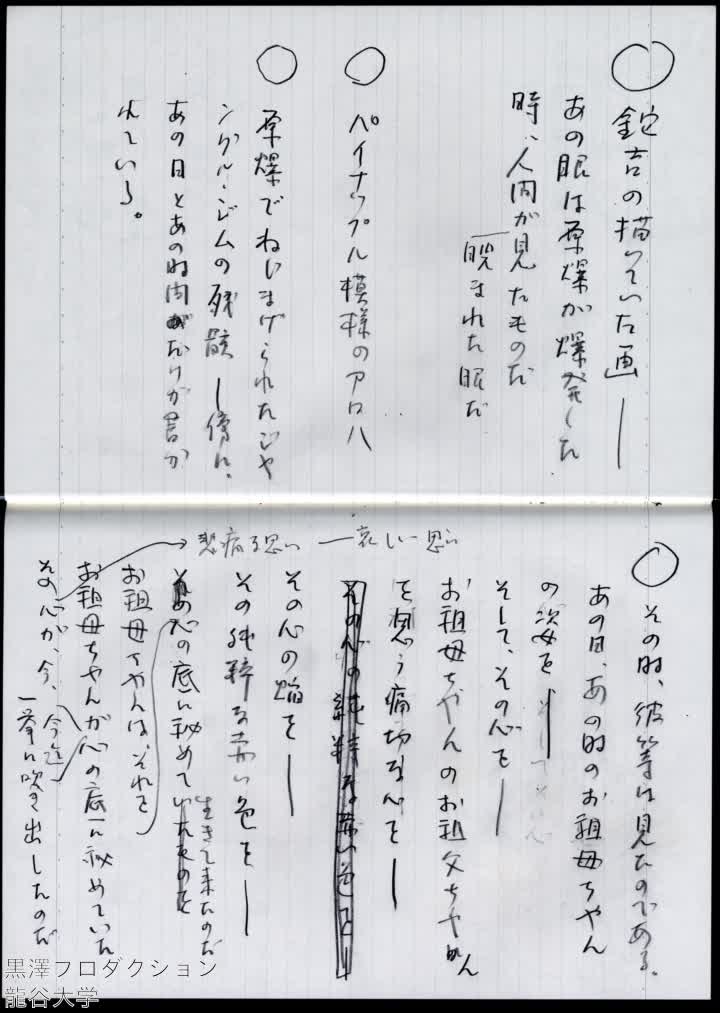 ○ 鉈吉の描いていた画──
あの眼は原爆が爆発した
時、人間が見たものだ
睨まれた眼だ
○ パイナップル模様のアロハ
○ 原爆でねじまげられたジャ
ングル・ジムの残骸─傍に、
あの日とあの時間だけが書か
れている。
○ その時、彼等は見たのである。
あの日、あの時のお祖母ちゃん
の姿を──
そして、その心を──
お祖母ちゃんのお祖父ちゃん
を想う痛切な心を──
その心の純粋な赤い色を──
その心の焔を──
その純粋な赤い色を──
その心の底に秘めていたものを
生きて来たのだ
お祖母ちゃんは、それを
お祖母ちゃんが心の底に秘めていた
悲痛な思い ─哀しい思い
その心が、今、今迄
一挙に吹き出したのだ
黒澤プロダクション
龍谷大学